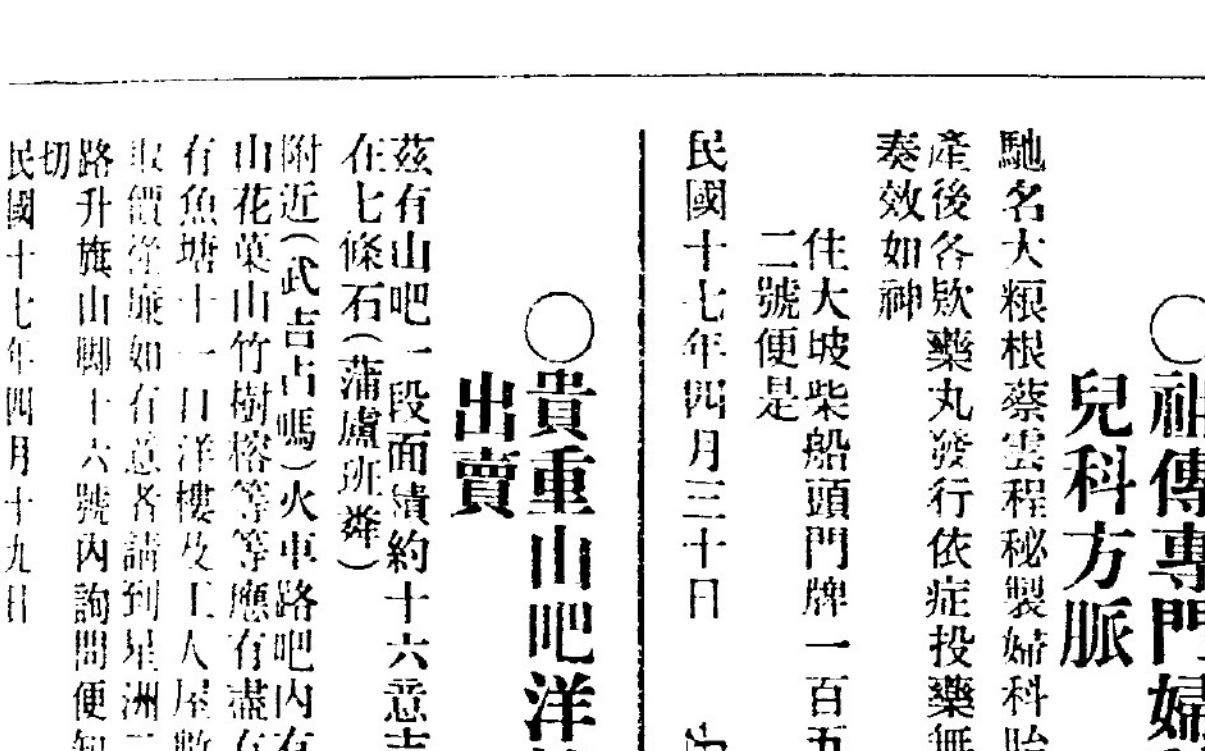 ○祖傳專門婦
兒科方脈
馳名大粮根蔡雲程秘製婦科胎
產後各欵藥丸發行依症投藥無
奏效如神
住大坡柴船頭門牌一百五
二號便是
民國十七年四月三十日
○貴重山吧洋
出賣
茲有山吧一段面積約十六意吉
在七條石(蒲盧班讓)
附近(武吉占嗎)火車路吧內有
山花菓山竹樹榕等等應有盡有
有魚塘十一口洋樓及工人屋數
取價從廉如有意者請到星洲二
路升旗山脚十六號內詢問便知
切
民國十七年四月十九日